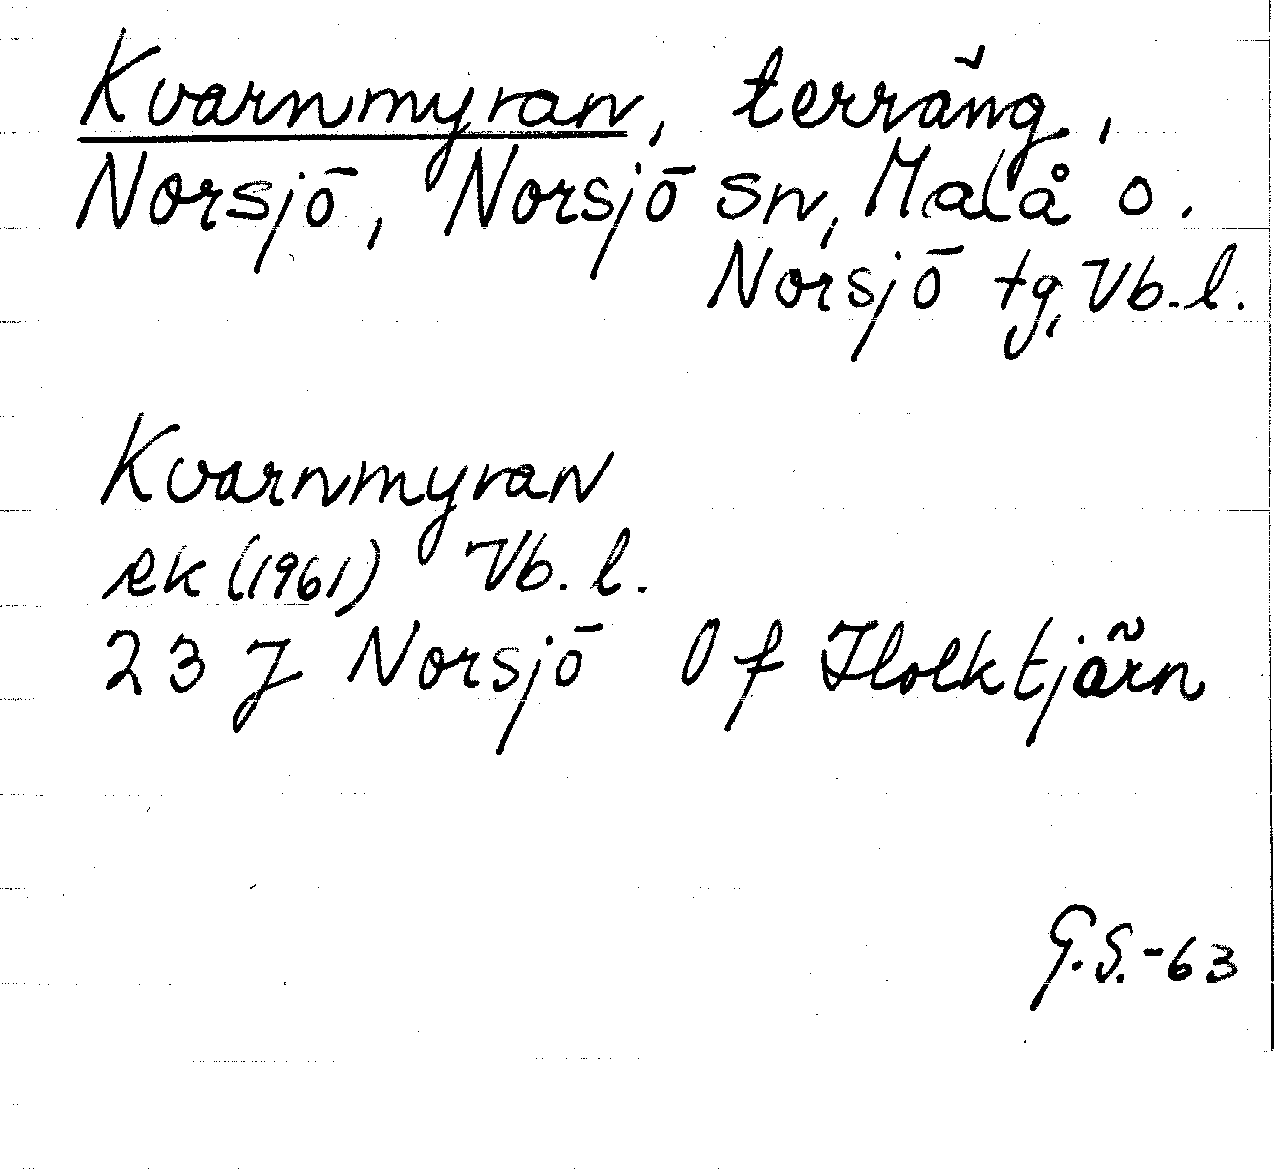 Kvarnmyran, terräng,
Norsjö, Norsjö sn, Malå o.
Norsjö tg, Vb. l.
Kvarnmyran
ek (1961) Vb. l.
23 J Norsjö 0 f Flolktjärn
G.S.-63